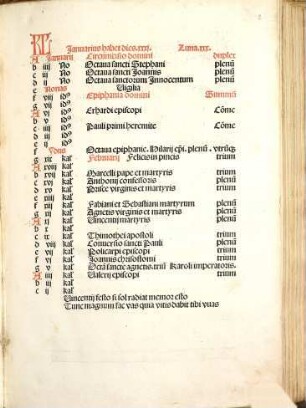 KL Januarius habet dies.xxxi. Luna.xxx.
A Januarii Circuncisio domini duplex
b iiii No Octaua sancti Stephani plenū
c iii No Octaua sancti Joannis plenū
d ii No Octaua sanctorum Innocentum plenū
e Nonas Vigilia
f viii idꝰ Epiphania domini Summū
g vii idꝰ
A vi idꝰ Erhardi episcopi Cōme
b v idꝰ
c iiii idꝰ Pauli primi heremite Cōme
d iii idꝰ
e ii idꝰ
f Idus Octaua epiphanie. Hilarij epi. plenū. vtrūqꝫ
g xix kal' Februarij Felicis in pincis trium
A xviii kal'
b xvii kal' Marcelli pape et martyris trium
c xvi kal' Anthonij confessoris plenū
d xv kal' Prisce virginis et martyris trium
e xiiii kal'
f xiii kal' Fabiani et Sebastiani martyrum plenū
g xii kal' Agnetis virginis et martyris plenū
A xi kal' Vincentij martyris plenū
b x kal'
c ix kal' Thimothei apostoli trium
d viii kal' Conuersio sancti Pauli plenū
e vii kal' Policarpi episcopi trium
f vi kal' Joannis chrisostomi trium
g v kal' Octa sancte agnetis. triū Karoli imperatoris.
A iiii kal' Valerij episcopi trium
b iii kal'
c ii kal'
Vincenti festo si sol radiat memor esto
Tunc magnum fac vas quia vitis dabit tibi vuas